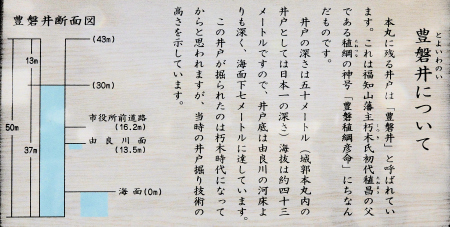 とよいわのい
豊磐井について
本丸に残る井戸は、「豊磐井」と呼ばれてい
ます。これは福知山藩主朽木氏初代稙昌の父
である稙綱の神号「豊磐稙綱彦命」にちなん
だものです。
井戸の深さは五十メートル(城郭本丸内の
井戸としては日本一の深さ)海抜は約四十三
メートルですので、井戸底は由良川の河床よ
りも深く、海面下七メートルに達しています。
この井戸が掘られたのは朽木時代になって
からと思われますが、当時の井戸掘り技術の
高さを示しています。
豊磐井断面図
(43m)
13m
(30m)
市役所前道路
(16.2m)
50m
由良川面
37m
(13.5m)
海面(0m)